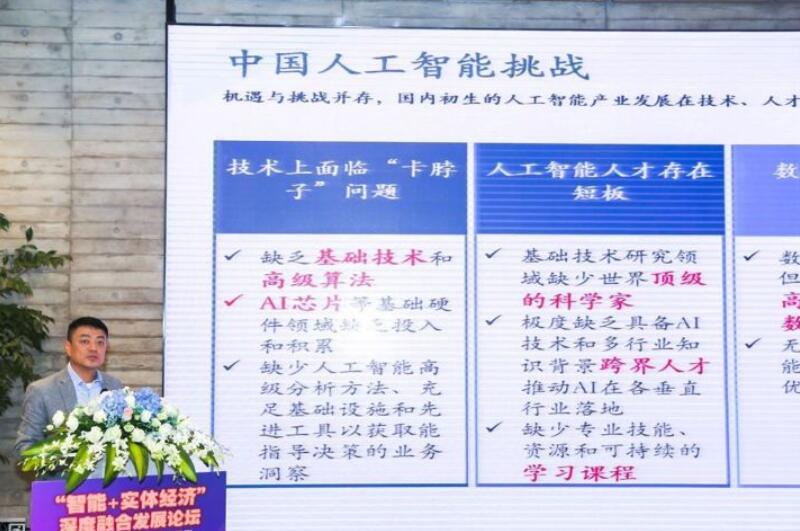 中国人工智能挑战
机遇与挑战并存，国内初生的人工智能产业发展在技术、人才
技术上面临“卡脖
子”问题
缺乏基础技术和
高级算法
AI芯片等基础硬
件领域缺乏投入
和积累
缺少人工智能高
级分析方法、充
足基础设施和先
进工具以获取能
指导决策的业务
洞察
人工智能人才存在
短板
基础技术研究领
域缺少世界顶级
的科学家
极度缺乏具备AI
技术和多行业知
识背景跨界人才
推动AI在各垂直
行业落地
缺少专业技能、
资源和可持续的
学习课程
数
数
但
高
数
无
能
优
“智能+实体经济”
深度融合发展论坛